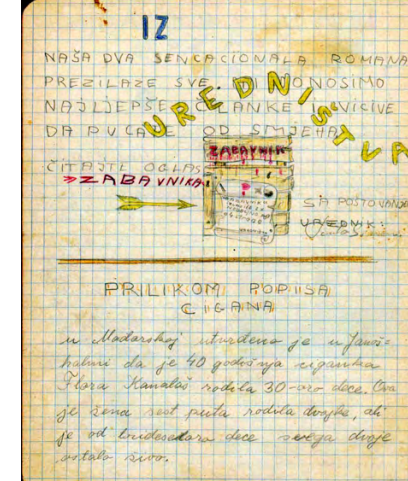 IZ
UREDNIŠTVA
NAŠA DVA SENZACIONALA ROMANA
PREZILAZE SVE. DONOSIMO
NAJLJEPŠE ČLANKE I VICIVE
DA PUCATE OD SMJEHA
ČITAJTE OGLAS
"ZABAVNIKA
ZABAVNIK
SA POŠTOVANJEM
UREDNIK:
PRILIKOM POPISA
CIGANA
u Mađarskoj utvrđeno je u
da je 40 godišnja ciganka
Flora Kanalaš rodila 30-oro dece. Ova
je žena šest puta rodila dvojke, ali
je od tridesetoro dece svega dvoje
ostalo živo.